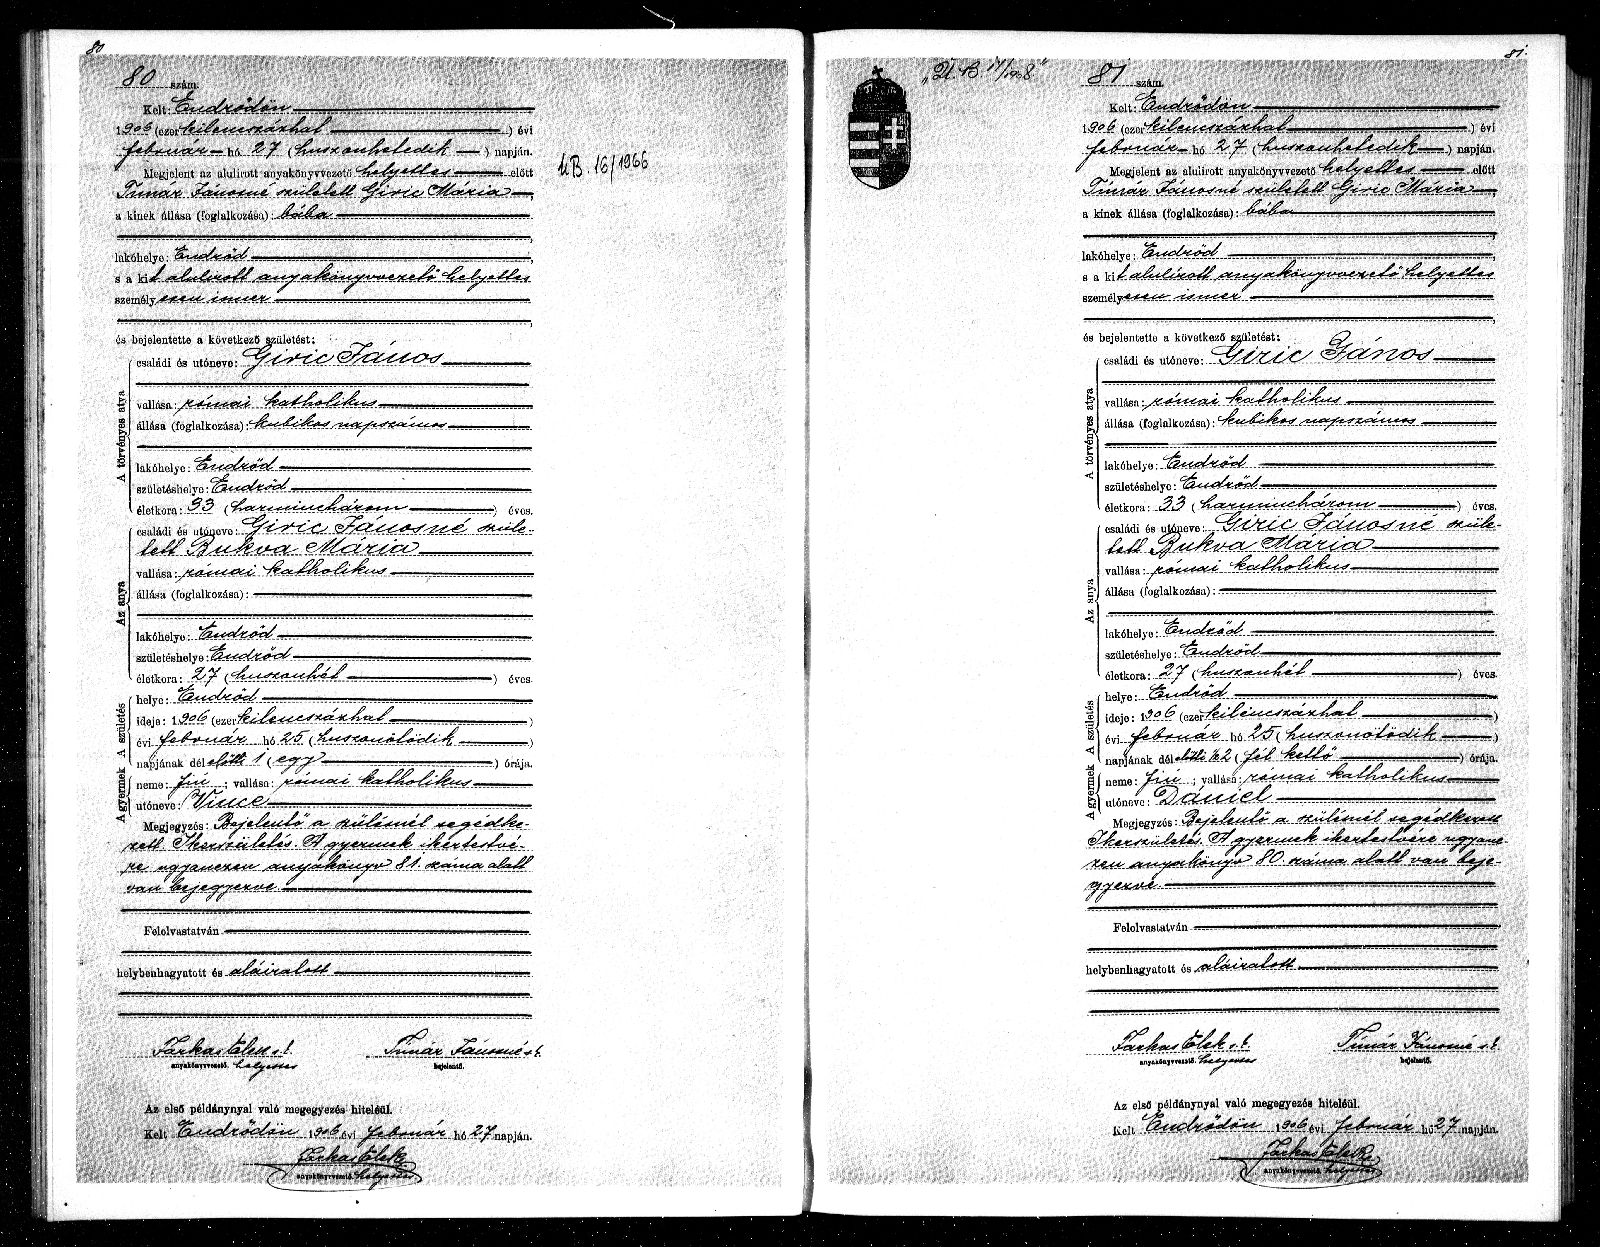 80
80 szám.
Kelt: Endrődön
1906 (ezer kilenczszázhat ) évi
február hó 27 (huszonhetedik ) napján.
Megjelent az alulirott anyakönyvvezető helyettes előtt
Tímár Jánosné született Giric Mária,
a kinek állása (foglalkozása): bába
lakóhelye: Endrőd,
s a kit alulirott anyakönyvvezető helyettes
személyesen ismer
és bejelentette a következő születést:
A törvényes atya
családi és utóneve: Giric János
vallása: római katholikus
állása (foglalkozása): kubikos napszámos
lakóhelye: Endrőd
születéshelye: Endrőd
életkora: 33 (harminchárom ) éves.
Az anya
családi és utóneve: Giric Jánosné szüle-
tett Bukva Mária
vallása: római katholikus
állása (foglalkozása):
lakóhelye: Endrőd
születéshelye: Endrőd
életkora: 27 (huszonhét ) éves.
A születés
helye: Endrőd
ideje: 1906 (ezer kilenczszázhat )
évi február hó 25 (huszonötödik )
napjának dél előtti 1 (egy ) órája.
A gyermek
neme: fiú; vallása: római katholikus
utóneve: Vince
Megjegyzés: Bejelentő a szülésnél segédke-
zett. Ikerszületés. A gyermek ikertestvé-
re ugyanezen anyakönyv 81. száma alatt
van bejegyezve.
Felolvastatván
helybenhagyatott és aláiratott
Farkas Elek s.k. Tímár Jánosné s.k.
anyakönyvvezető. helyettes bejelentő.
Az első példánynyal való megegyezés hiteléül.
Kelt Endrődön 1906 évi február hó 27 napján.
Farkas Elek
anyakönyvvezető. helyettes
UB. 16/1966
81.
"U B 17/1968"
81 szám.
Kelt: Endrődön
1906 (ezer kilenczszázhat ) évi
február hó 27 (huszonhetedik ) napján.
Megjelent az alulirott anyakönyvvezető helyettes előtt
Tímár Jánosné született Giric Mária,
a kinek állása (foglalkozása): bába
lakóhelye: Endrőd,
s a kit alulirott anyakönyvvezető helyettes
személyesen ismer
és bejelentette a következő születést:
A törvényes atya
családi és utóneve: Giric János
vallása: római katholikus
állása (foglalkozása): kubikos napszámos
lakóhelye: Endrőd
születéshelye: Endrőd
életkora: 33 (harminchárom ) éves.
Az anya
családi és utóneve: Giric Jánosné szüle-
tett Bukva Mária
vallása: római katholikus
állása (foglalkozása):
lakóhelye: Endrőd
születéshelye: Endrőd
életkora: 27 (huszonhét ) éves.
A születés
helye: Endrőd
ideje: 1906 (ezer kilenczszázhat )
évi február hó 25 (huszonötödik )
napjának dél előtti ½2 (fél kettő ) órája.
A gyermek
neme: fiú; vallása: római katholikus
utóneve: Dániel
Megjegyzés: Bejelentő a szülésnél segédkezett
Ikerszületés. A gyermek ikertestvére ugyane-
zen anyakönyv 80 száma alatt van beje-
gyezve.
Felolvastatván
helybenhagyatott és aláiratott
Farkas Elek s.k. Tímár Jánosné s.k.
anyakönyvvezető. helyettes bejelentő.
Az első példánynyal való megegyezés hiteléül.
Kelt Endrődön 1906 évi február hó 27 napján.
Farkas Elek
anyakönyvvezető. helyettes